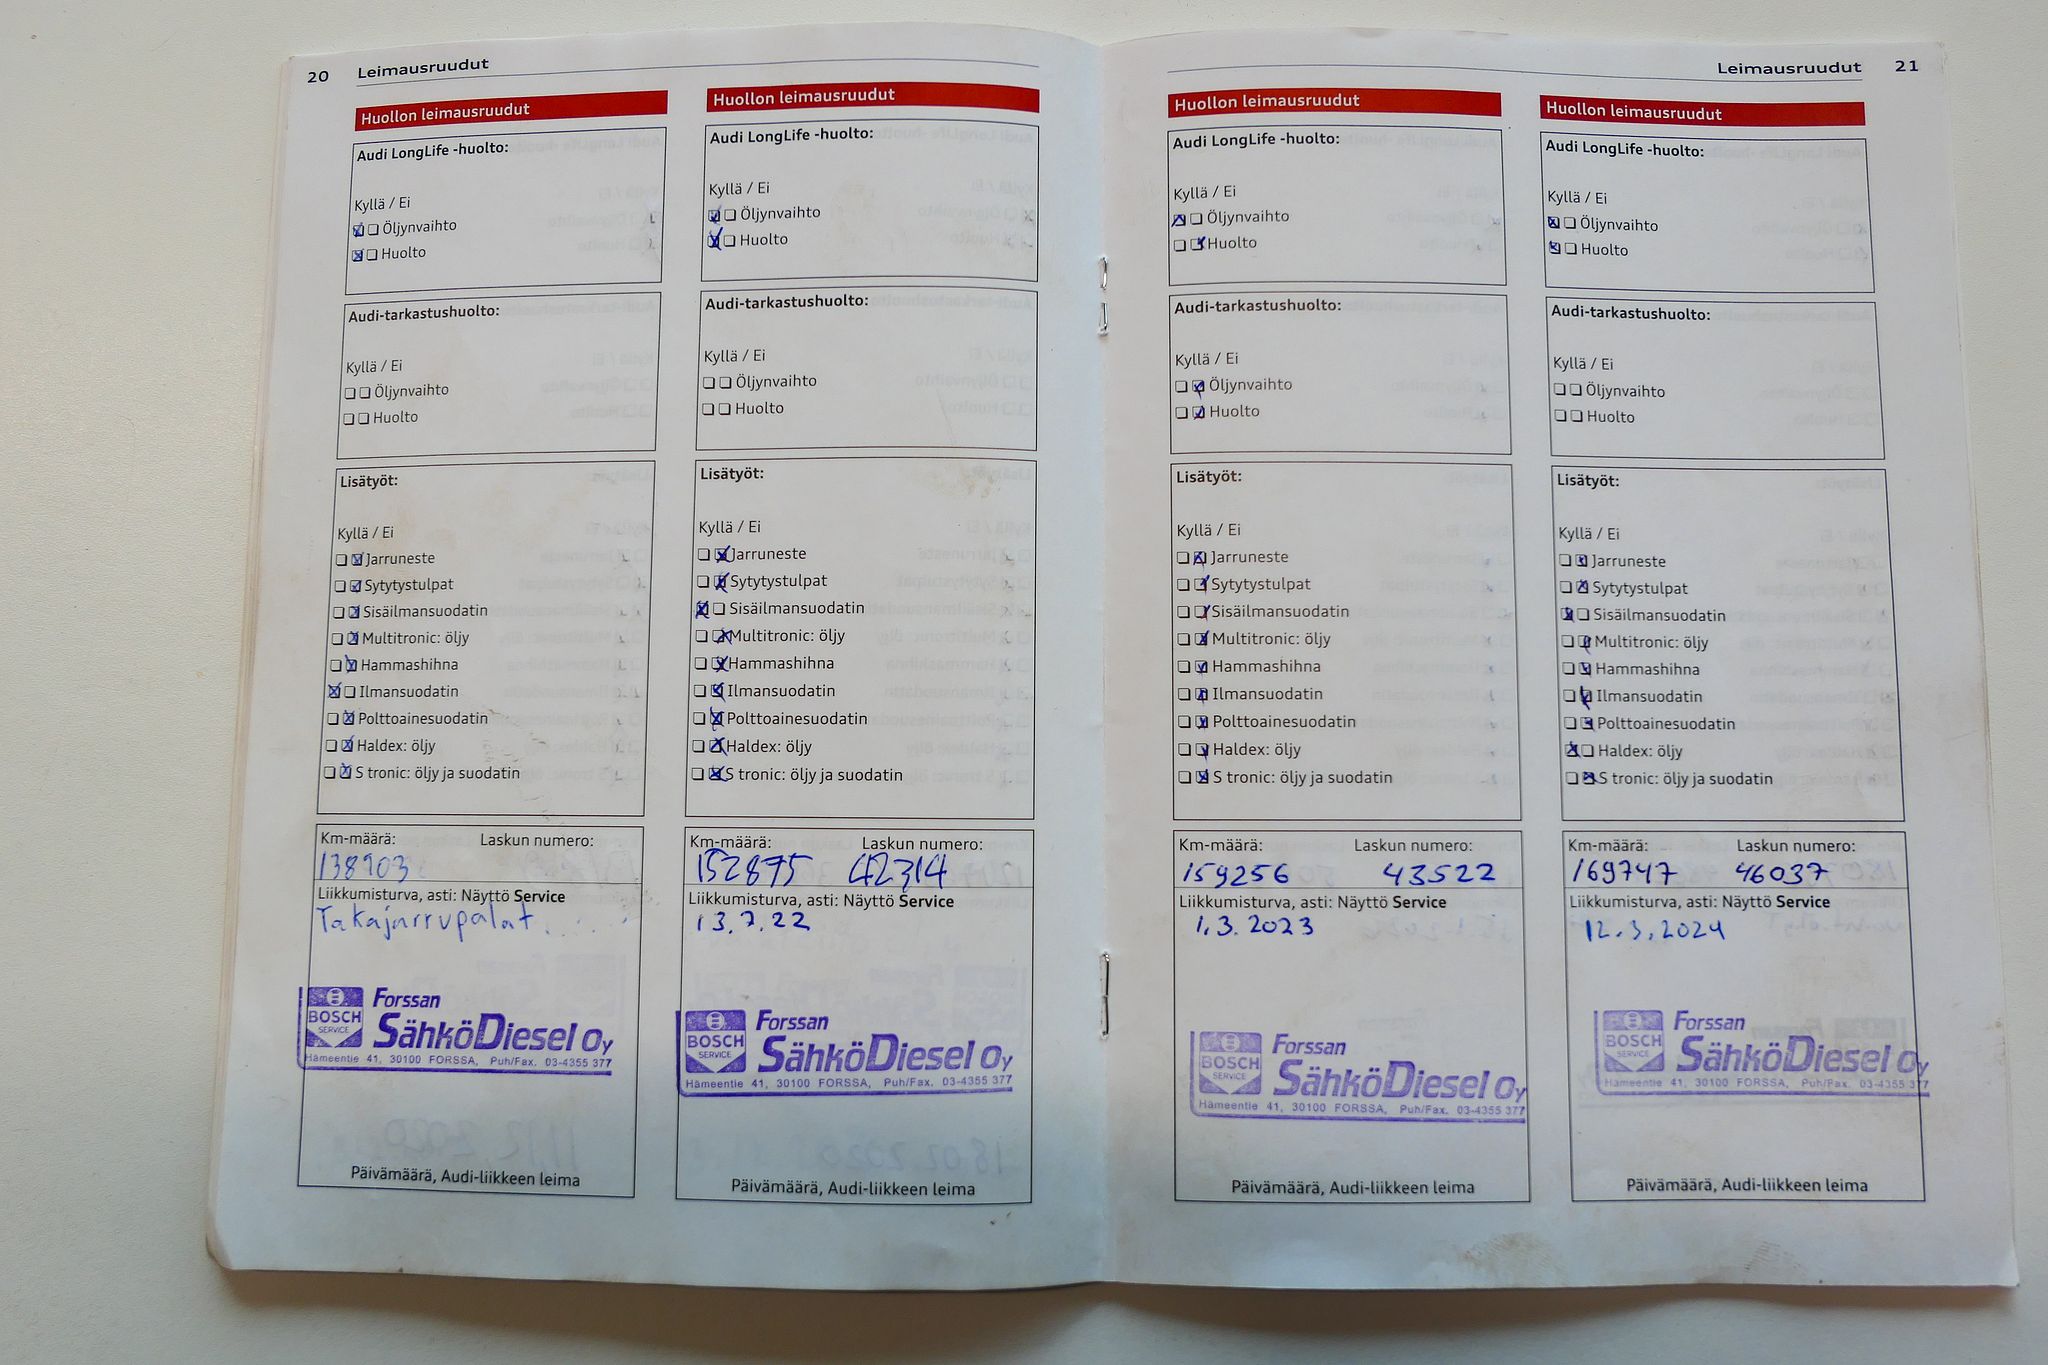 20 Leimausruudut
Huollon leimausruudut
Audi LongLife -huolto:
Kyllä / Ei
Öljynvaihto
Huolto
Audi-tarkastushuolto:
Kyllä / Ei
Öljynvaihto
Huolto
Lisätyöt:
Kyllä / Ei
Jarruneste
Sytytystulpat
Sisäilmansuodatin
Multitronic: öljy
Hammashihna
Ilmansuodatin
Polttoainesuodatin
Haldex: öljy
S tronic: öljy ja suodatin
Km-määrä: Laskun numero:
138903
Liikkumisturva, asti: Näyttö Service
Takajarrupalat.....
BOSCH SERVICE
Forssan
SähköDiesel Oy
Hämeentie 41, 30100 FORSSA, Puh/Fax. 03-4355 377
Päivämäärä, Audi-liikkeen leima
Huollon leimausruudut
Audi LongLife -huolto:
Kyllä / Ei
Öljynvaihto
Huolto
Audi-tarkastushuolto:
Kyllä / Ei
Öljynvaihto
Huolto
Lisätyöt:
Kyllä / Ei
Jarruneste
Sytytystulpat
Sisäilmansuodatin
Multitronic: öljy
Hammashihna
Ilmansuodatin
Polttoainesuodatin
Haldex: öljy
S tronic: öljy ja suodatin
Km-määrä: Laskun numero:
152875 42314
Liikkumisturva, asti: Näyttö Service
13.7.22
BOSCH SERVICE
Forssan
SähköDiesel Oy
Hämeentie 41, 30100 FORSSA, Puh/Fax. 03-4355 377
Päivämäärä, Audi-liikkeen leima
Leimausruudut 21
Huollon leimausruudut
Audi LongLife -huolto:
Kyllä / Ei
Öljynvaihto
Huolto
Audi-tarkastushuolto:
Kyllä / Ei
Öljynvaihto
Huolto
Lisätyöt:
Kyllä / Ei
Jarruneste
Sytytystulpat
Sisäilmansuodatin
Multitronic: öljy
Hammashihna
Ilmansuodatin
Polttoainesuodatin
Haldex: öljy
S tronic: öljy ja suodatin
Km-määrä: Laskun numero:
159256 43522
Liikkumisturva, asti: Näyttö Service
1.3.2023
BOSCH SERVICE
Forssan
SähköDiesel Oy
Hämeentie 41, 30100 FORSSA, Puh/Fax. 03-4355 377
Päivämäärä, Audi-liikkeen leima
Huollon leimausruudut
Audi LongLife -huolto:
Kyllä / Ei
Öljynvaihto
Huolto
Audi-tarkastushuolto:
Kyllä / Ei
Öljynvaihto
Huolto
Lisätyöt:
Kyllä / Ei
Jarruneste
Sytytystulpat
Sisäilmansuodatin
Multitronic: öljy
Hammashihna
Ilmansuodatin
Polttoainesuodatin
Haldex: öljy
S tronic: öljy ja suodatin
Km-määrä: Laskun numero:
169747 46037
Liikkumisturva, asti: Näyttö Service
12.3.2024
BOSCH SERVICE
Forssan
SähköDiesel Oy
Hämeentie 41, 30100 FORSSA, Puh/Fax. 03-4355 377
Päivämäärä, Audi-liikkeen leima